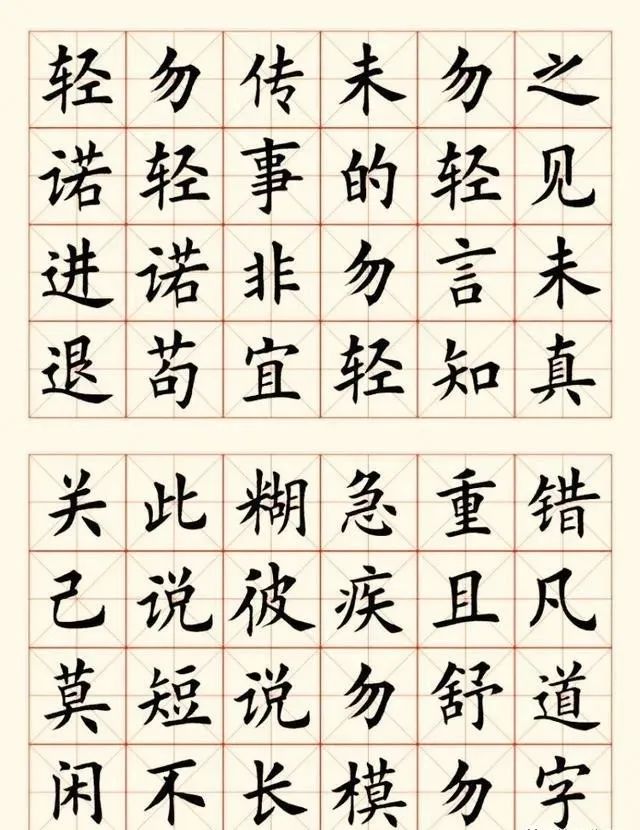 之见未真
勿轻言知
未的勿轻
传事非宜
勿轻诺苟
轻诺进退
错凡道字
重且舒勿
急疾勿模
糊彼说长
此说短不
关己莫闲